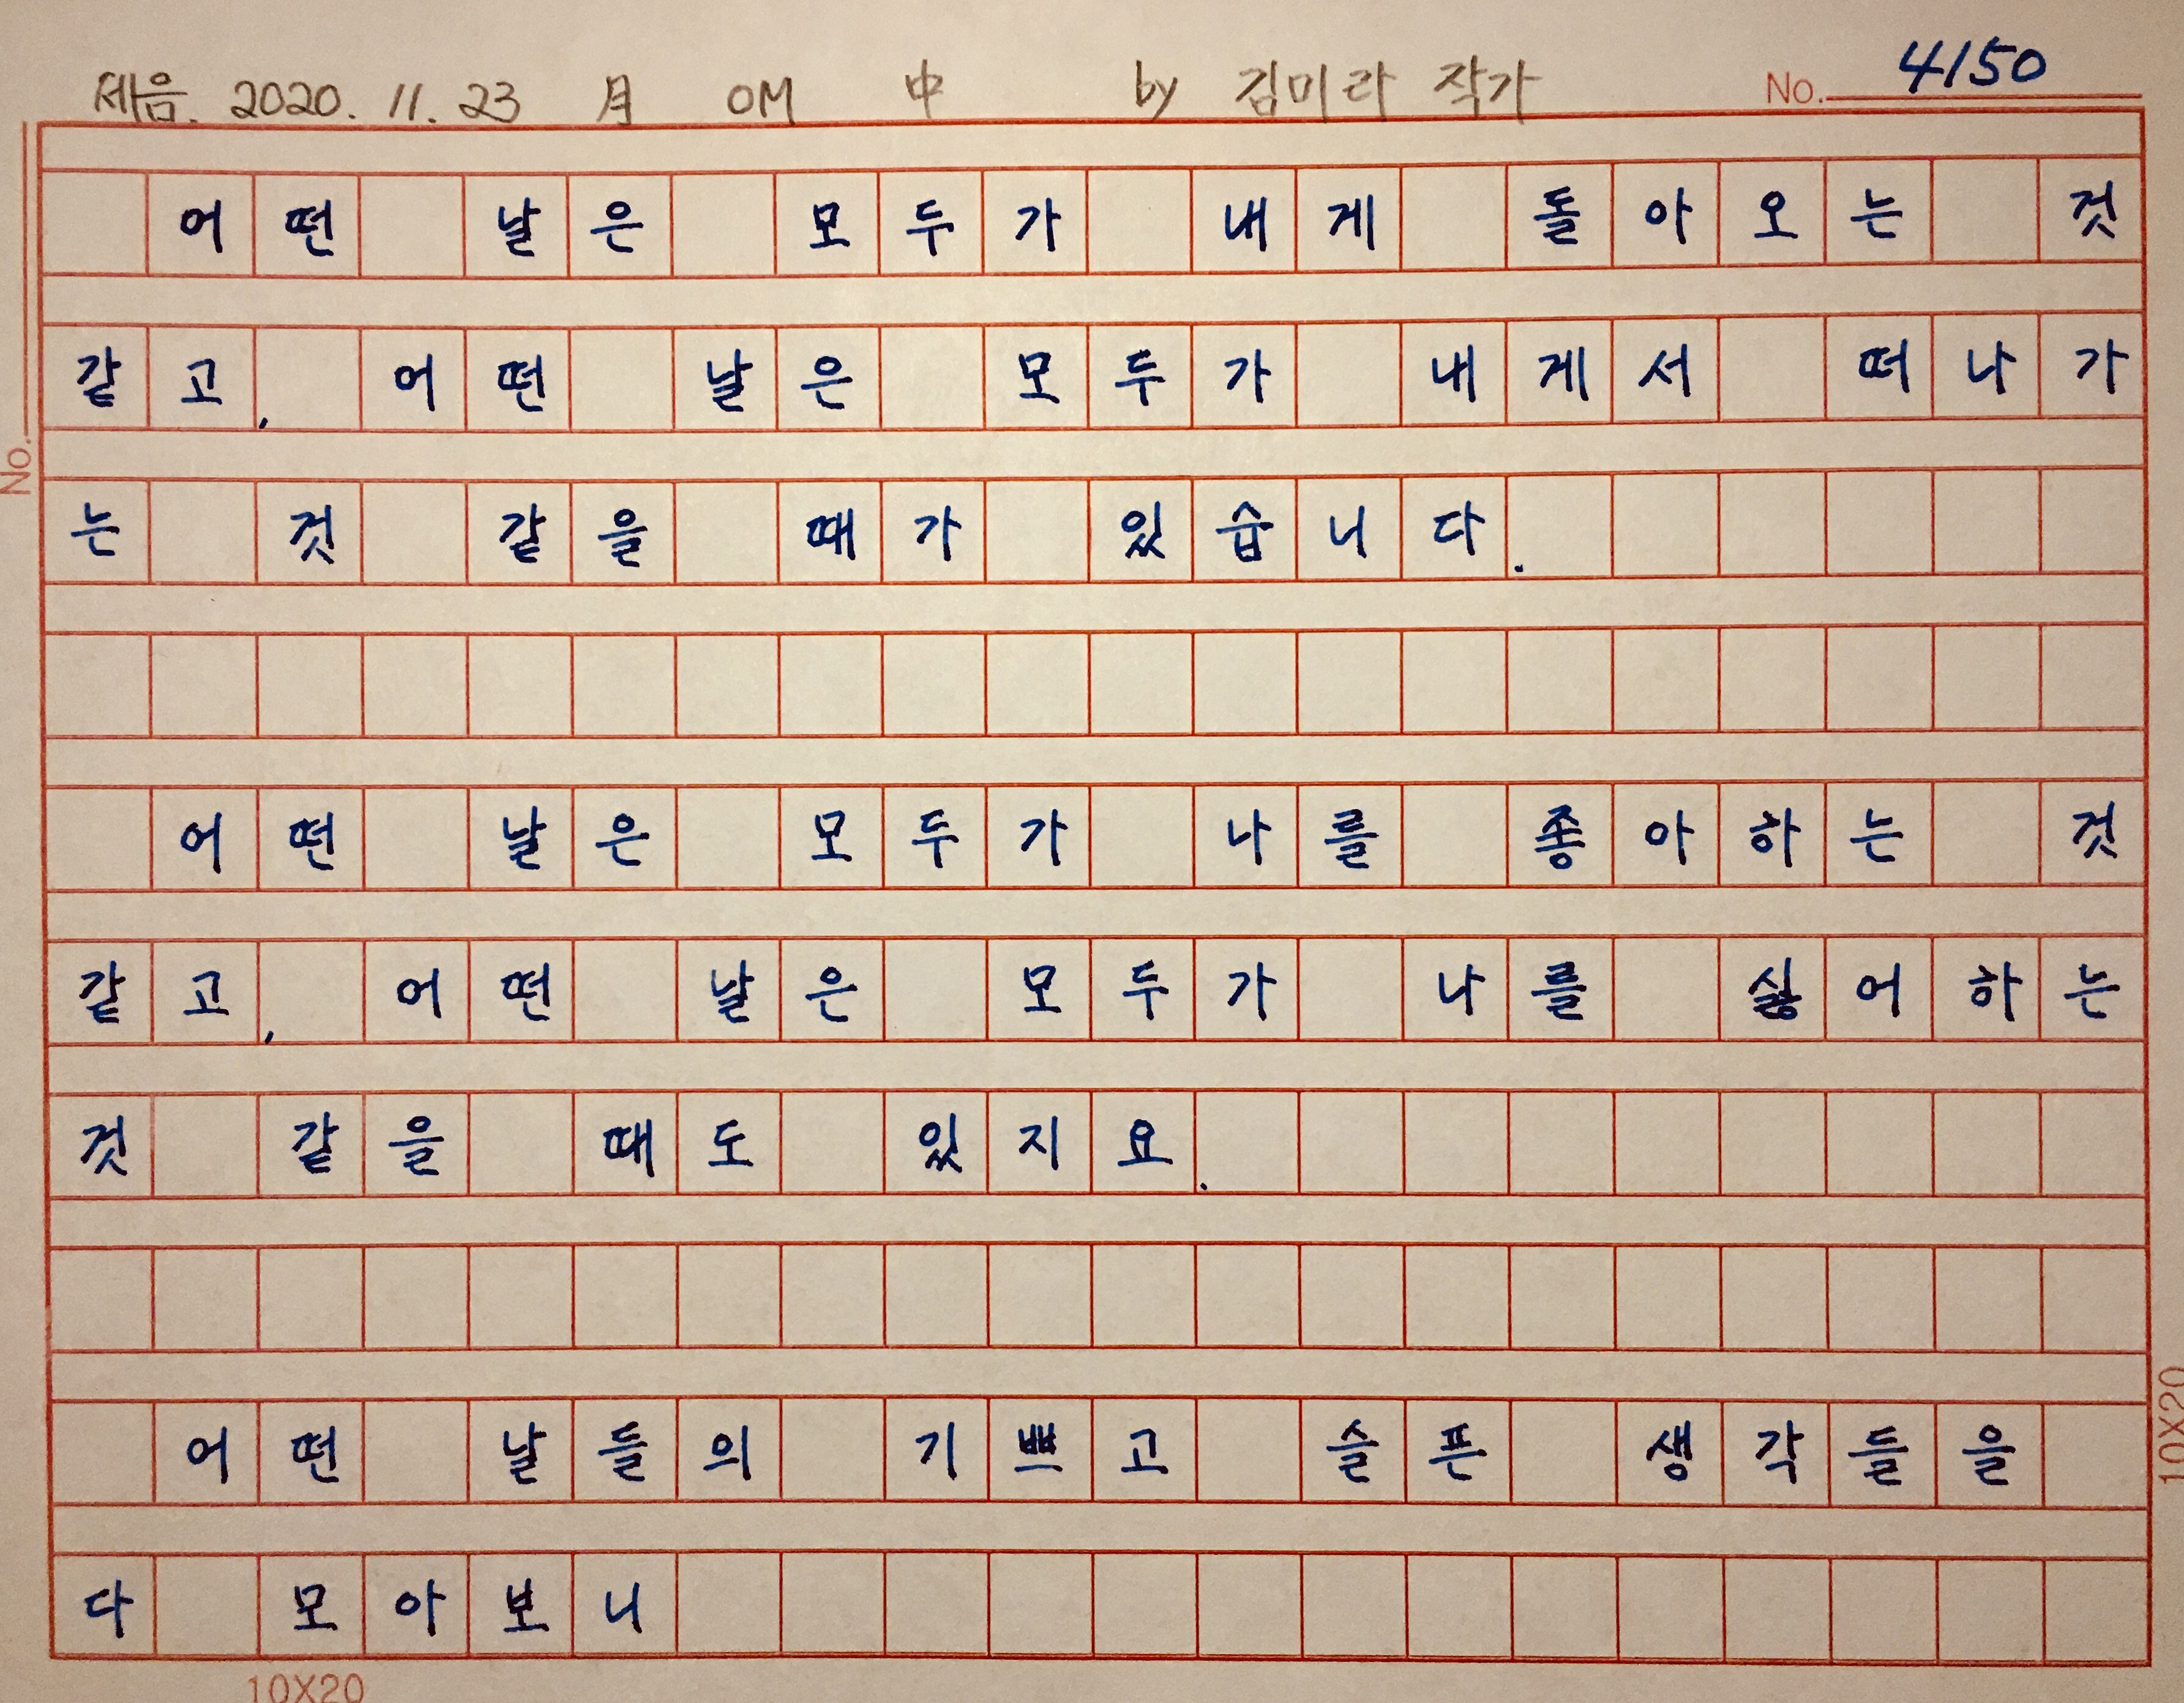 세음. 2020. 11. 23 月 OM 中 by 김미라 작가 No. 4150
어떤 날은 모두가 내게 돌아오는 것
같고, 어떤 날은 모두가 내게서 떠나가
No.
는 것 같을 때가 있습니다.
어떤 날은 모두가 나를 좋아하는 것
같고, 어떤 날은 모두가 나를 싫어하는
것 같을 때도 있지요.
어떤 날들의 기쁘고 슬픈 생각들을
10X20
다 모아보니
10X20